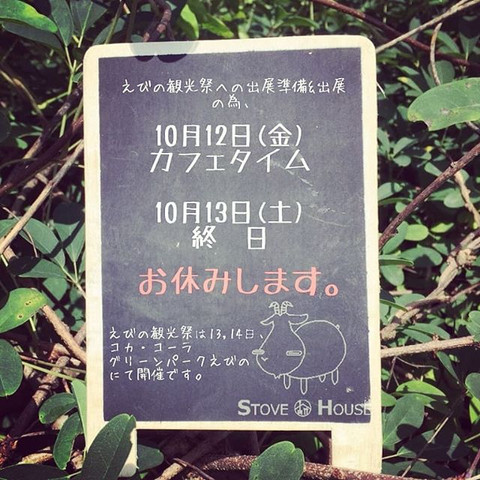 えびの観光祭への出展準備&出展
の為、
10月12日(金)
カフェタイム
10月13日(土)
終 日
お休みします。
えびの観光祭は13,14日、
コカ・コーラ
グリーンパークえびの
にて開催です。
STOVE HOUSE